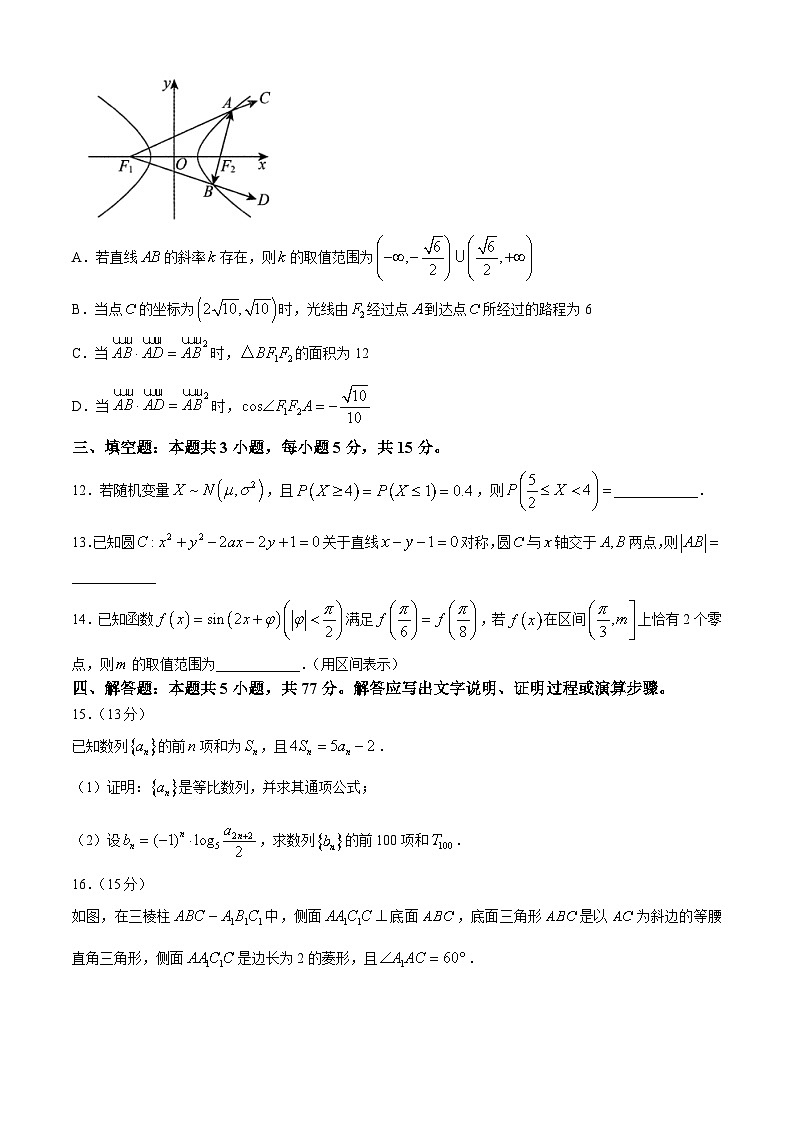 y
A
C
F₁
O
F₂
x
B
D
A．若直线AB的斜率k存在，则k的取值范围为(−∞,−√6/2)∪(√6/2,+∞)
B．当点C的坐标为(2√10,√10)时，光线由F₂经过点A到达点C所经过的路程为6
C．当AB·AD=AB²时，△BF₁F₂的面积为12
D．当AB·AD=AB²时，cos∠F₁F₂A=−√10/10
三、填空题：本题共3小题，每小题5分，共15分。
12．若随机变量X~N(μ,σ²)，且P(X≥4)=P(X≤1)=0.4，则P(5/2≤X<4)=____________．
13.已知圆C:x²+y²−2ax−2y+1=0关于直线x−y−1=0对称,圆C与x轴交于A,B两点,则|AB|=
____________
14．已知函数f(x)=sin(2x+φ)(|φ|<π/2)满足f(π/6)=f(π/8)，若f(x)在区间(π/3,m]上恰有2个零
点，则m的取值范围为____________.（用区间表示）
四、解答题：本题共5小题，共77分。解答应写出文字说明、证明过程或演算步骤。
15.（13分）
已知数列{aₙ}的前n项和为Sₙ，且4Sₙ=5aₙ−2．
（1）证明：{aₙ}是等比数列，并求其通项公式；
（2）设bₙ=(−1)ⁿ·log₅(a₂ₙ₊₂/2)，求数列{bₙ}的前100项和T₁₀₀．
16.（15分）
如图，在三棱柱ABC−A₁B₁C₁中，侧面AA₁C₁C⊥底面ABC，底面三角形ABC是以AC为斜边的等腰
直角三角形，侧面AA₁C₁C是边长为2的菱形，且∠A₁AC=60°．